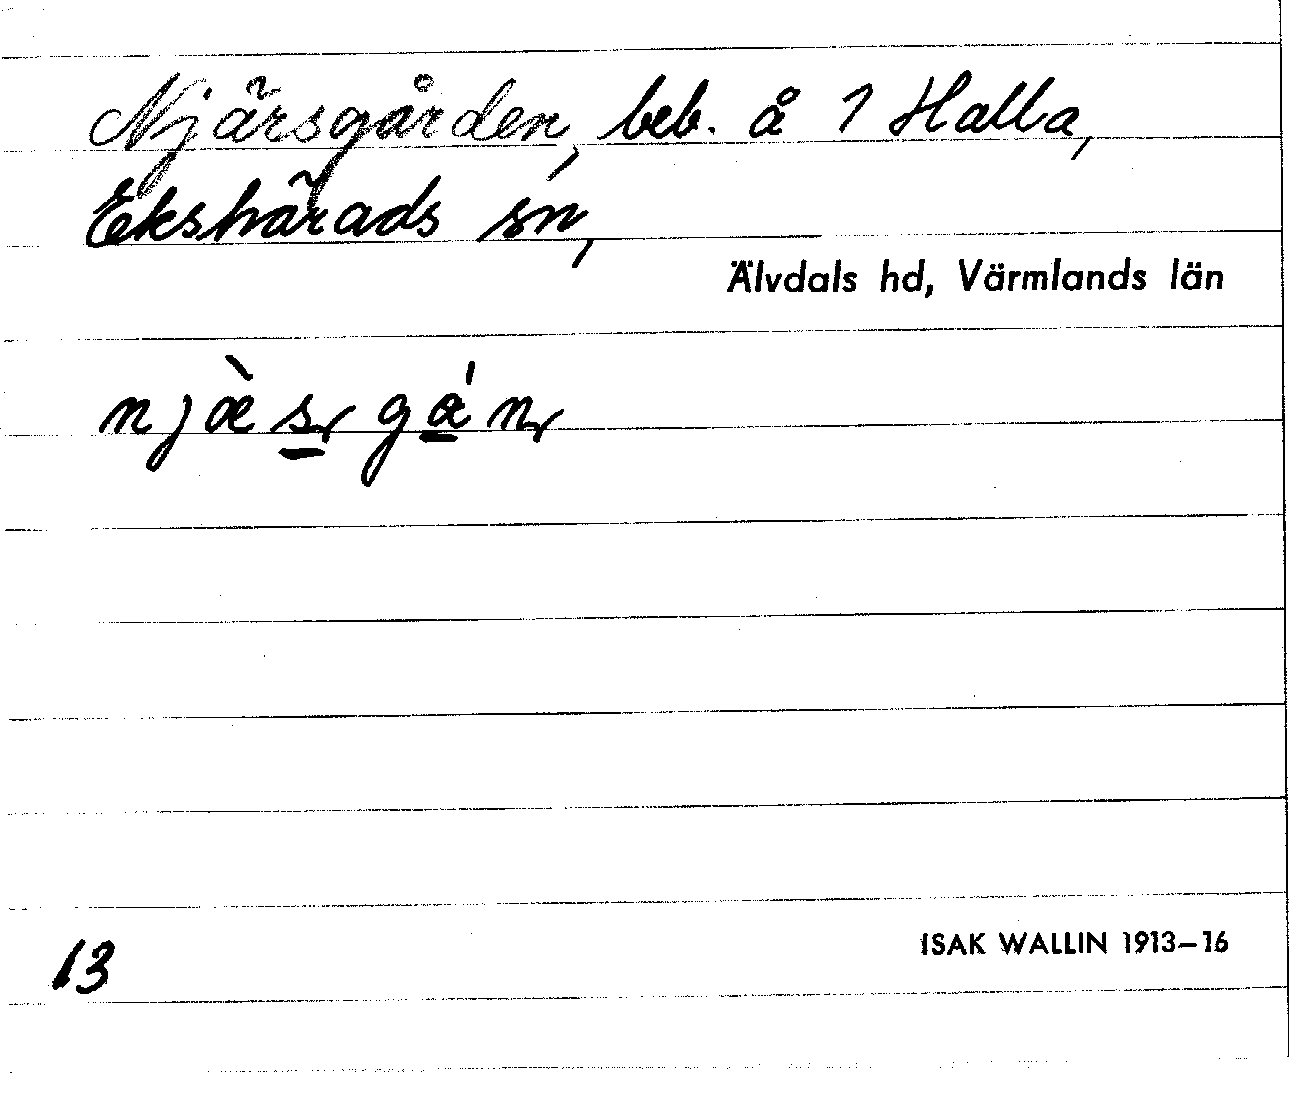 Njärsgården, beb. å 1 Halla,
Ekshärads sn,
Älvdals hd, Värmlands län
njæ̀s̲rgά̲nr
13
ISAK WALLIN 1913–16